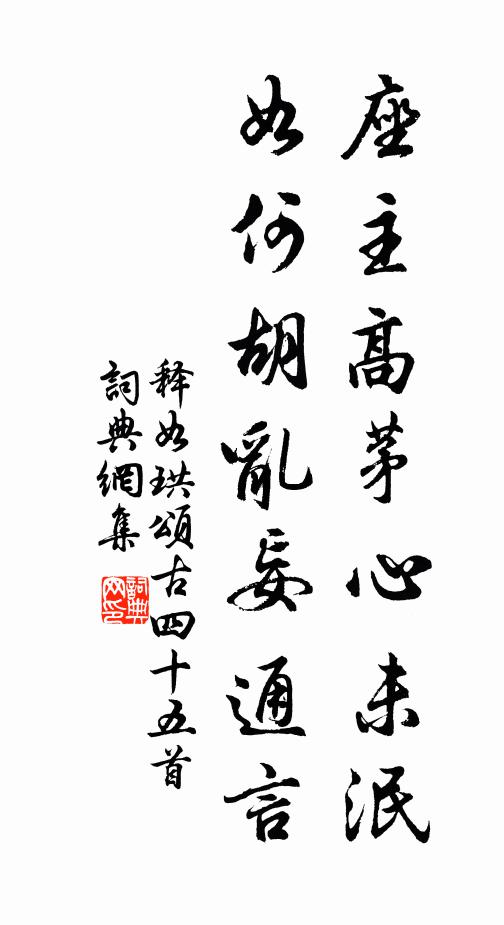 座主高茅心未泯
如何胡亂妄通言
释如珙頌古四十五首
詞典網集
詞典网印